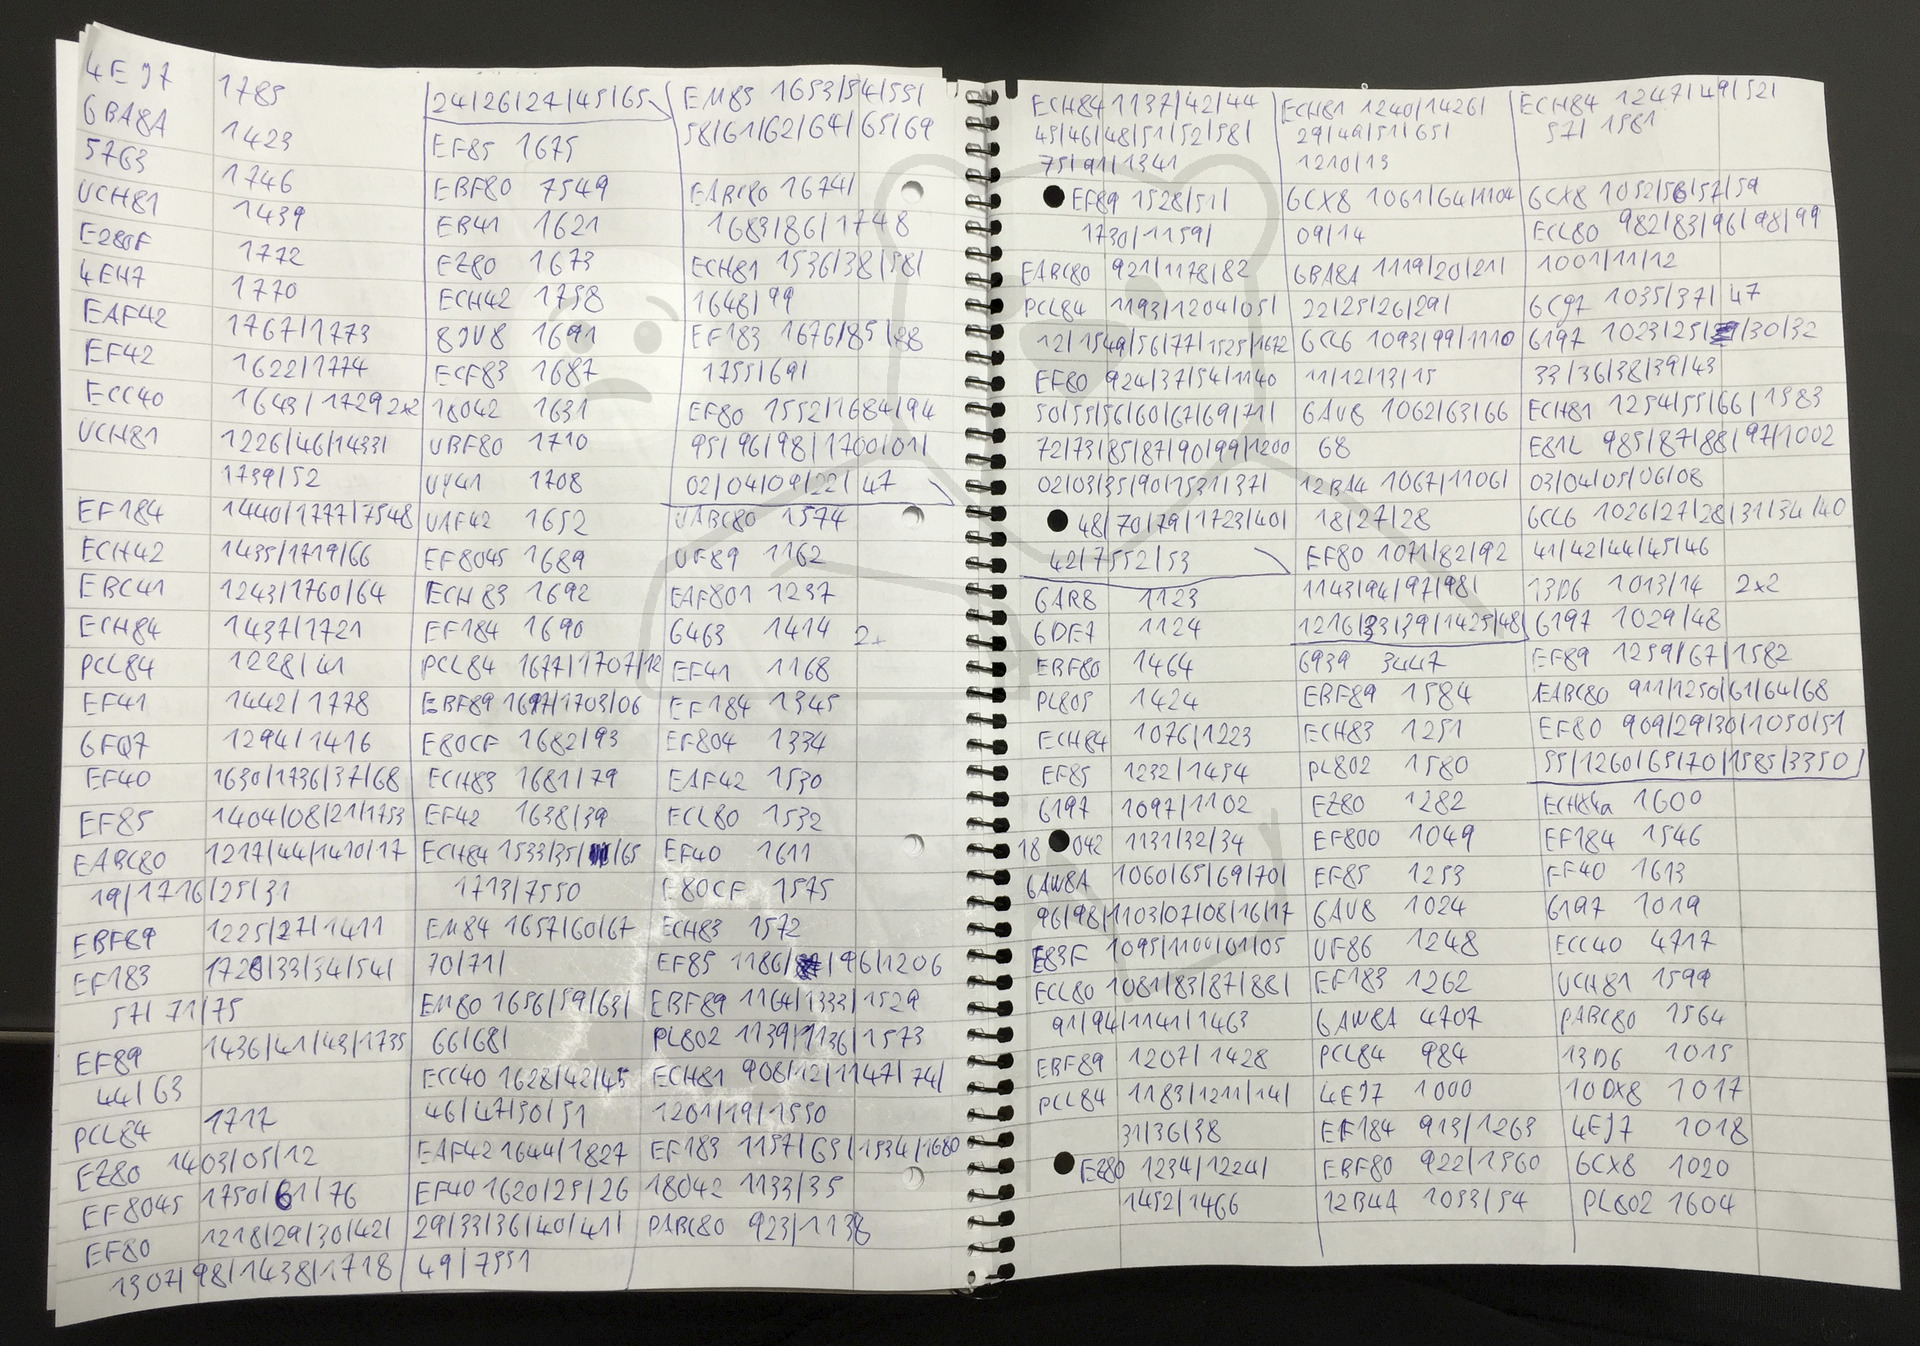 4EJ7 1785
6BA8A 1423
5763 1746
UCH81 1439
E280F 1772
4EH7 1770
EAF42 1767/1773
EF42 1622/1774
ECC40 1643/1729 2x2
UCH81 1226/46/1433/
1739/52
EF184 1440/1777/7548
ECH42 1435/1719/66
EBC41 1243/1760/64
ECH84 1437/1721
PCL84 1228/41
EF41 1442/1778
6FQ7 1294/1416
EF40 1630/1736/37/68
EF85 1404/08/21/1753
EABC80 1217/44/1410/17
19/1716/25/31
EBF89 1225/27/1411
EF183 1728/33/34/54/
57/71/75
EF89 1436/41/43/1735
44/63
PCL84 1717
EZ80 1403/05/12
EF804S 1750/61/76
EF80 1218/29/30/42/
1307/98/1438/1718
24/26/27/45/65
EF85 1675
EBF80 7549
EB41 1621
EZ80 1673
ECH42 1758
8JV8 1691
ECF83 1687
18042 1631
UBF80 1710
UY41 1708
UAF42 1652
EF804S 1689
ECH83 1692
EF184 1690
PCL84 1677/1707/12
EBF89 1697/1703/06
E80CF 1682/93
ECH83 1681/79
EF42 1638/39
ECH84 1533/35/ /65
1713/7550
EM84 1657/60/67
70/71/
EM80 1656/59/63/
66/68/
ECC40 1628/42/45
46/47/50/51
EAF42 1644/1827
EF40 1620/25/26
29/33/36/40/41/
49/7551
EM85 1653/54/55/
58/61/62/64/65/69
EABC80 1674/
1683/86/1748
ECH81 1536/38/58/
1648/99
EF183 1676/85/88
1755/69/
EF80 1552/1684/94
95/96/98/1700/01/
02/04/09/22/47
UABC80 1574
UF89 1162
EAF801 1237
6463 1414 2x
EF41 1168
EF184 1345
EF804 1334
EAF42 1530
ECL80 1532
EF40 1611
E80CF 1575
ECH83 1572
EF85 1186/ /96/1206
EBF89 1164/1333/1529
PL802 1139/9136/1573
ECH81 908/12/1147/74/
1201/19/1550
EF183 1157/65/1534/1680
18042 1133/35
PABC80 923/1138
ECH84 1137/42/44
45/46/48/51/52/58/
75/91/1341
EF89 1528/51/
1730/1159/
EABC80 921/1178/82
PCL84 1193/1204/05/
12/1549/56/77/1525/1672
EF80 924/37/54/1140
50/55/56/60/67/69/71/
72/73/85/87/90/99/1200
02/03/35/90/1531/37/
48/70/79/1723/40/
42/7552/53
6AR8 1123
6DE7 1124
EBF80 1464
PL805 1424
ECH84 1076/1223
EF85 1232/1454
6197 1097/1102
18042 1131/32/34
6AW8A 1060/65/69/70/
96/98/1103/07/08/16/17
E83F 1095/1100/01/05
ECL80 1081/83/87/88/
91/94/1141/1463
EBF89 1207/1428
PCL84 1183/1211/14/
31/36/38
EZ80 1234/1224/
1452/1466
ECH81 1240/1426/
29/49/51/65/
1210/13
6CX8 1061/64/1104
09/14
6BA8A 1119/20/21/
22/25/26/29/
6CL6 1093/99/1110
11/12/13/15
6AU8 1062/63/66
68
12BA4 1067/1106/
18/27/28
EF80 1071/82/92
1143/94/97/98/
1216/33/39/1425/48
6939 3447
EBF89 1584
ECH83 1251
PL802 1580
EZ80 1282
EF800 1049
EF85 1253
6AU8 1024
UF86 1248
EF183 1262
6AW8A 4707
PCL84 984
4EJ7 1000
EF184 913/1263
EBF80 922/1560
12B4A 1053/54
ECH84 1247/49/52/
57/1581
6CX8 1052/56/57/59
ECL80 982/83/96/98/99
1001/11/12
6CG7 1035/37/47
6197 1023/25/ /30/32
33/36/38/39/43
ECH81 1254/55/66/1583
E81L 985/87/88/97/1002
03/04/05/06/08
6CL6 1026/27/28/31/34/40
41/42/44/45/46
13D6 1013/14 2x2
6197 1029/48
EF89 1259/67/1582
EABC80 911/1250/61/64/68
EF80 909/29/30/1050/51
55/1260/65/70/1585/3350/
ECH84a 1600
EF184 1546
EF40 1613
6197 1019
ECC40 4717
UCH81 1599
PABC80 1564
13D6 1015
10DX8 1017
4EJ7 1018
6CX8 1020
PL802 1604